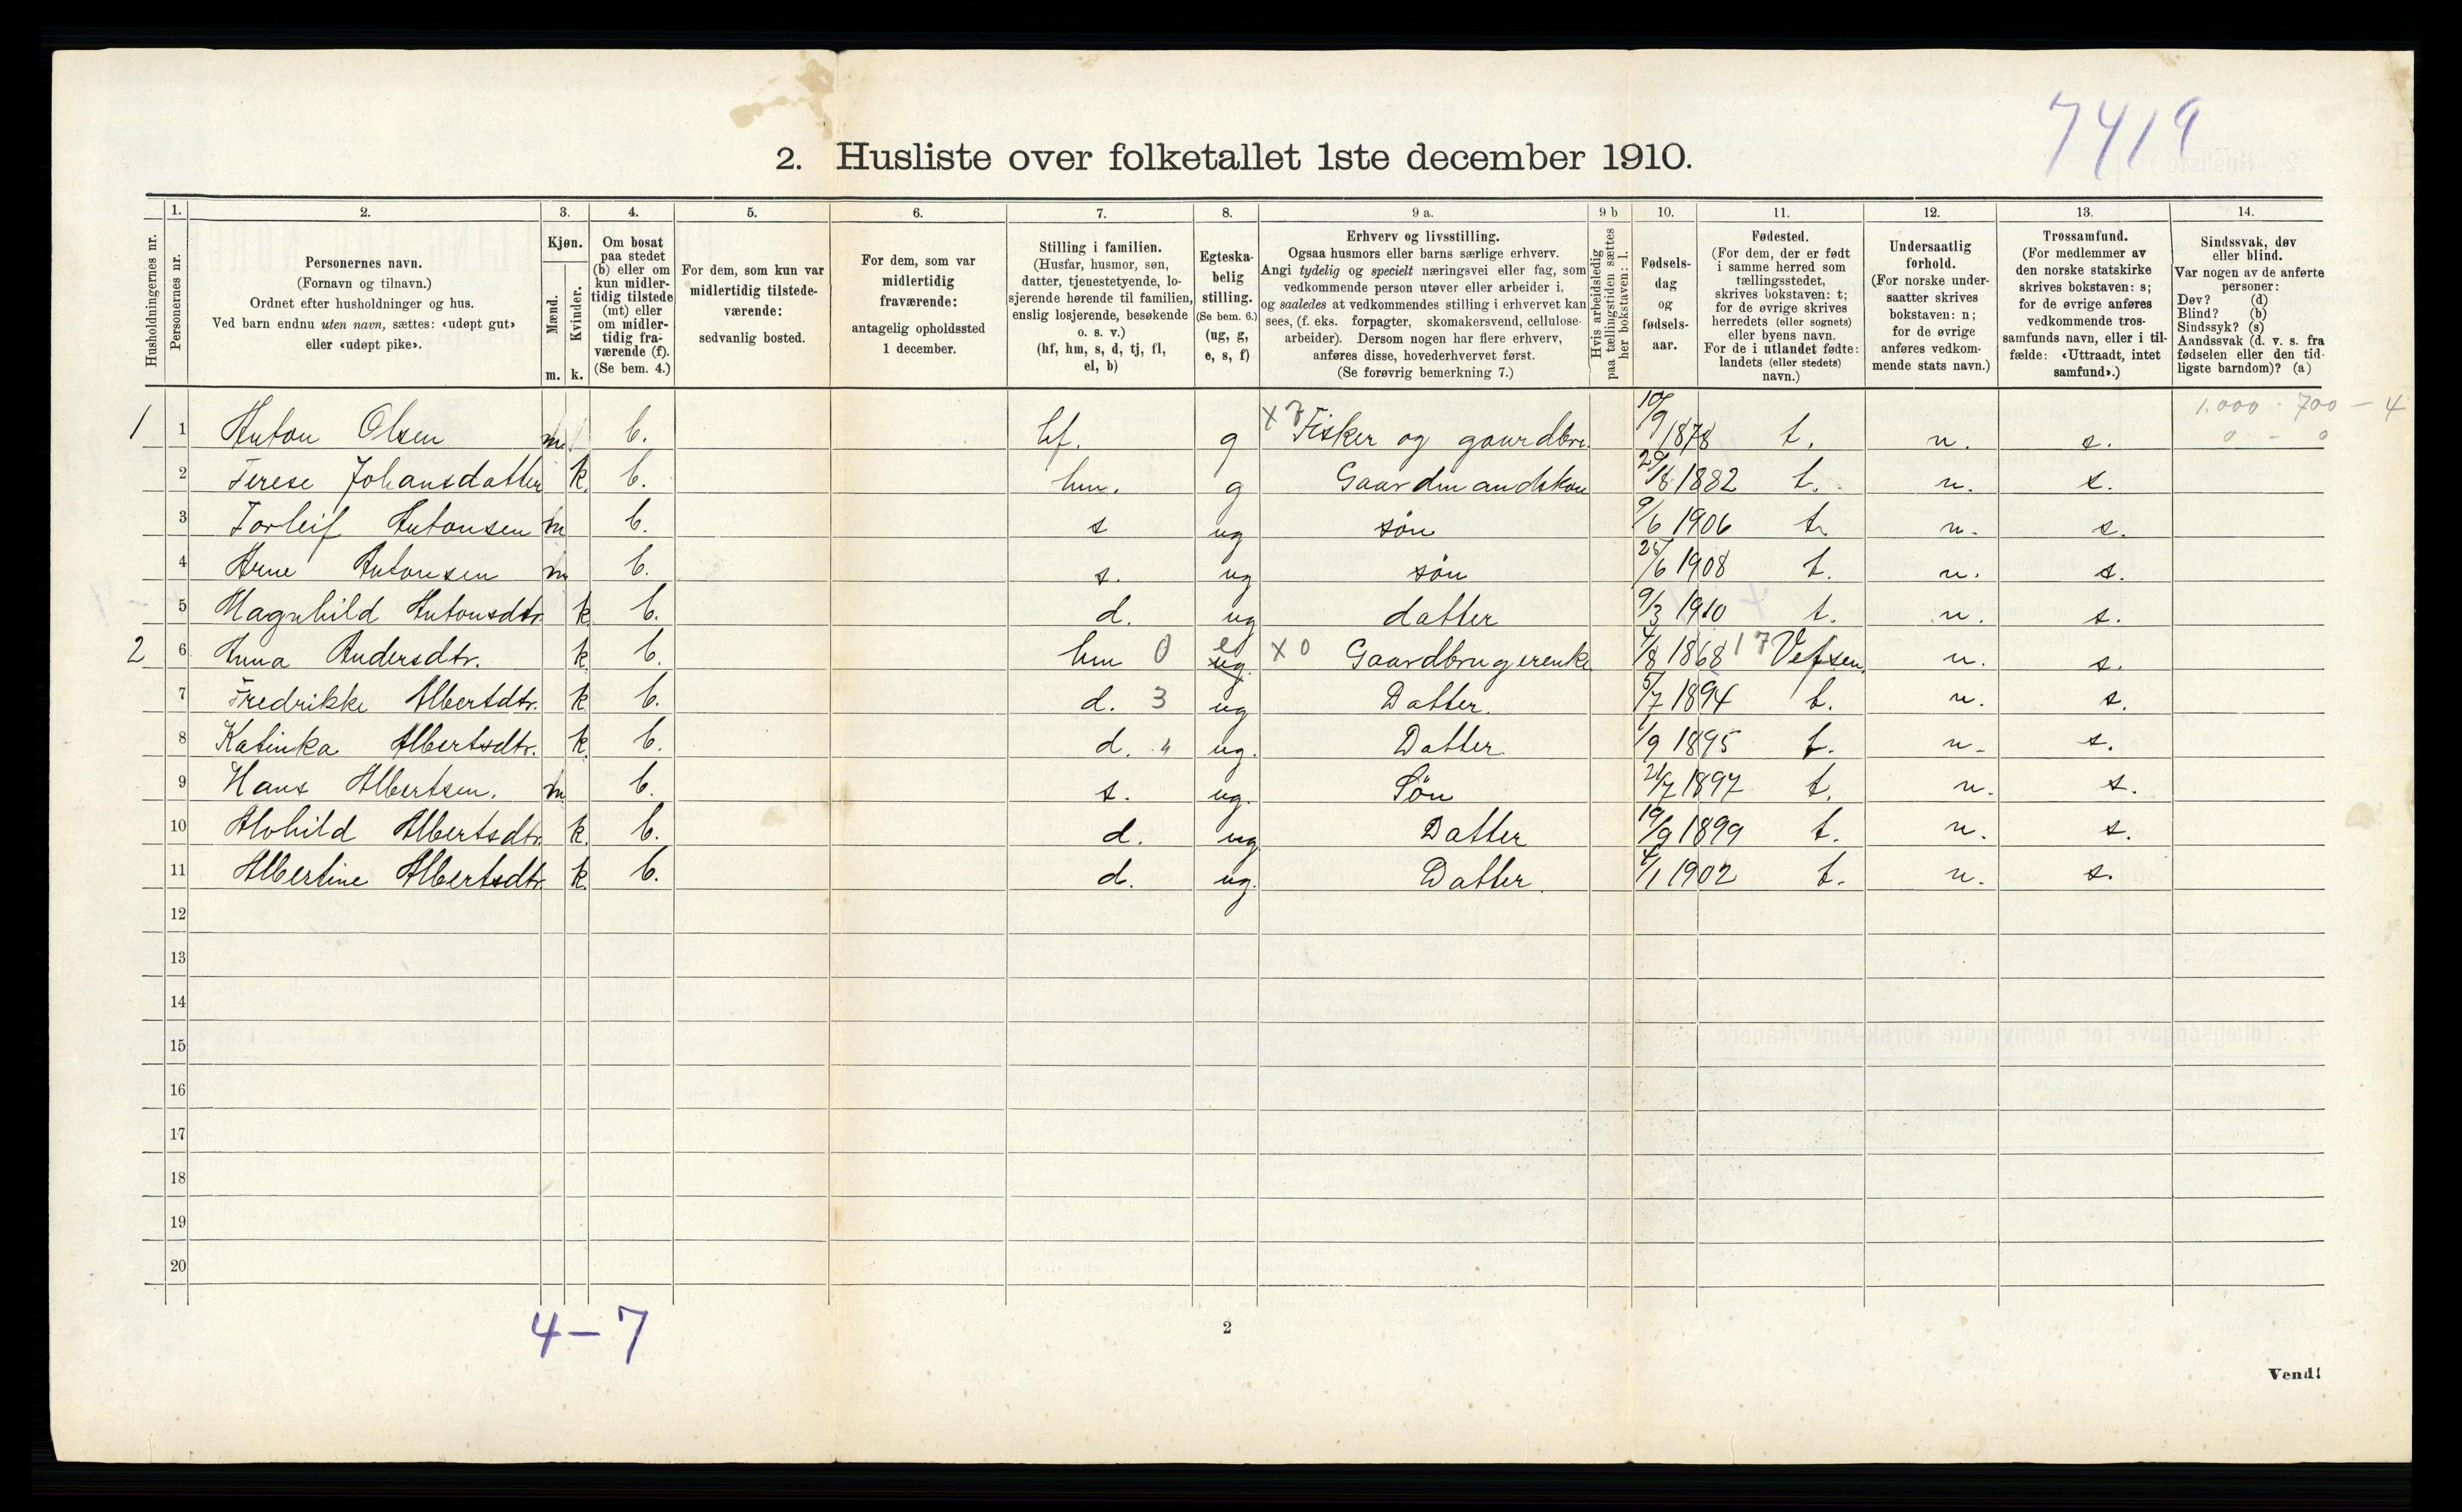 7419
2. Husliste over folketallet 1ste december 1910.
1. 2. 3. 4. 5. 6. 7. 8. 9 a. 9 b 10. 11. 12. 13. 14.
Husholdningernes nr.
Personernes nr.
Personernes navn.
(Fornavn og tilnavn.)
Ordnet efter husholdninger og hus.
Ved barn endnu uten navn, sættes: «udøpt gut»
eller «udøpt pike».
Kjøn.
Mænd.
Kvinder.
m. k.
Om bosat
paa stedet
(b) eller om
kun midler-
tidig tilstede
(mt) eller
om midler-
tidig fra-
værende (f).
(Se bem. 4.)
For dem, som kun var
midlertidig tilstede-
værende:
sedvanlig bosted.
For dem, som var
midlertidig
fraværende:
antagelig opholdssted
1 december.
Stilling i familien.
(Husfar, husmor, søn,
datter, tjenestetyende, lo-
sjerende hørende til familien,
enslig losjerende, besøkende
o. s. v.)
(hf, hm, s, d, tj, fl,
el, b)
Egteska-
belig
stilling.
(Se bem. 6.)
(ug, g,
e, s, f)
Erhverv og livsstilling.
Ogsaa husmors eller barns særlige erhverv.
Angi tydelig og specielt næringsvei eller fag, som
vedkommende person utøver eller arbeider i,
og saaledes at vedkommendes stilling i erhvervet kan
sees, (f. eks. forpagter, skomakersvend, cellulose-
arbeider). Dersom nogen har flere erhverv,
anføres disse, hovederhvervet først.
(Se forøvrig bemerkning 7.)
Hvis arbeidsledig
paa tællingstiden sættes
her bokstaven: l.
Fødsels-
dag
og
fødsels-
aar.
Fødested.
(For dem, der er født
i samme herred som
tællingsstedet,
skrives bokstaven: t;
for de øvrige skrives
herredets (eller sognets)
eller byens navn.
For de i utlandet fødte:
landets (eller stedets)
navn.)
Undersaatlig
forhold.
(For norske under-
saatter skrives
bokstaven: n;
for de øvrige
anføres vedkom-
mende stats navn.)
Trossamfund.
(For medlemmer av
den norske statskirke
skrives bokstaven: s;
for de øvrige anføres
vedkommende tros-
samfunds navn, eller i til-
fælde: «Uttraadt, intet
samfund».)
Sindssvak, døv
eller blind.
Var nogen av de anførte
personer:
Døv? (d)
Blind? (b)
Sindssyk? (s)
Aandssvak (d. v. s. fra
fødselen eller den tid-
ligste barndom)? (a)
1.000 - 700 - 4
0 - 0
1 1 Anton Olsen m b. hf. g x 7 Fisker og gaardbr. 10/9 1878 t. n. s.
2 Terese Johansdatter k. b. hm. g Gaardmandskone 29/8 1882 t. n. s.
3 Torleif Antonsen m b. s ug søn 9/6 1906 t. n. s.
4 Arne Antonsen m b. s. ug søn 25/6 1908 t. n. s.
5 Magnhild Antonsdtr. k. b. d. ug datter 9/3 1910 t. n. s.
2 6 Anna Andersdtr. k. b. hm 0 e ug. x 0 Gaardbrugerenke 4/8 1868 17 Vefsen. n. s.
7 Fredrikke Albertdtr. k. b. d. 3 ug Datter. 5/7 1894 t. n. s.
8 Katinka Albertsdtr. k. b. d. " ug. Datter 1/9 1895 t. n. s.
9 Hans Albertsen. m. b. s. ug. Søn 21/7 1897 t. n. s.
10 Alvhild Albertsdtr. k. b. d. ug Datter 19/9 1899 t. n. s.
11 Albertine Albertsdtr. k. b. d. ug. Datter. 4/1 1902 t. n. s.
12
13
14
15
16
17
18
19
20
4-7
2
Vend!